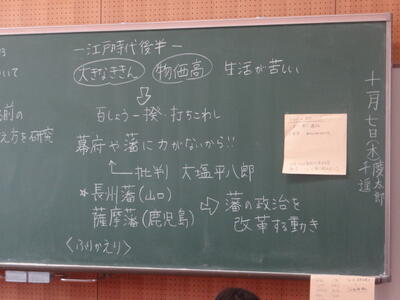 ー江戸時代後半ー
大きなききん 物価高 生活が苦しい
百しょう一揆・打ちこわし
幕府や藩に力がないから!!
批判 大塩平八郎
*長州藩(山口)
薩摩藩(鹿児島)
藩の政治を
改革する動き
<ふりかえり>
いて
前の
え方を研究
十月七日(木)慶太郎
千遥